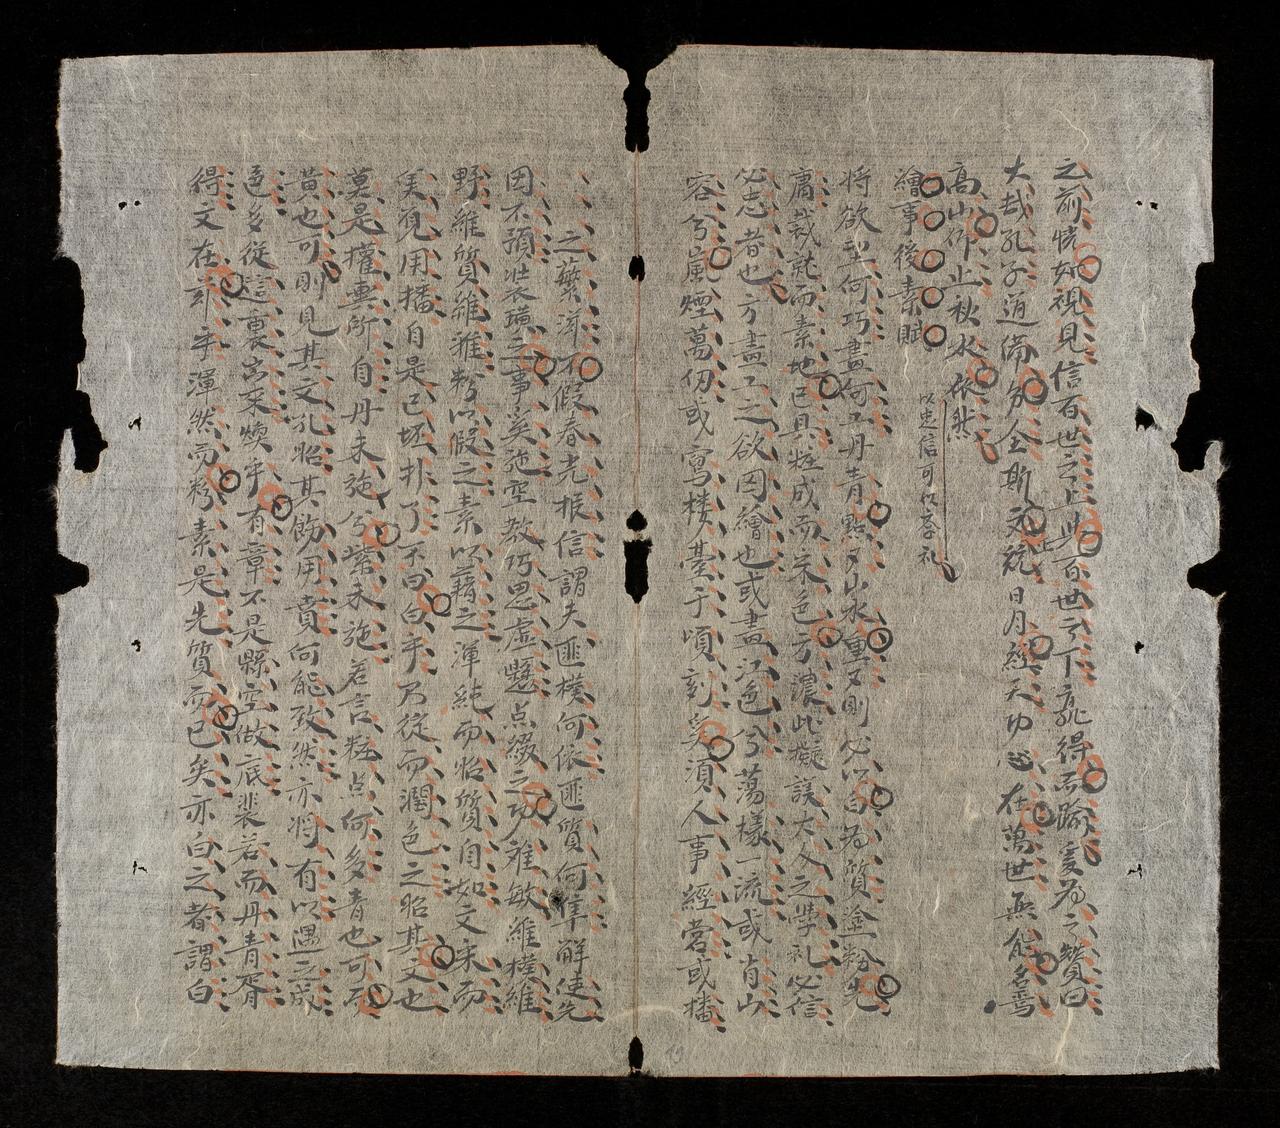 之前恍如視見信百世之上此百世之下靡得而踰爰為之贊曰
大哉孔子道備勿全斯元統日月經天功在萬世無能名焉
高山仰止秋水依然
繪事後素賦
以忠信可以學礼
将欲畫何巧畫何工丹青點又山水重又則必以白為質塗粉先
庸裁就而素地已具粧成而采色方濃此擬議大人之學礼必信
必忠者也方畫工之欲圖繪也或畫江色兮蕩樣一流或肖山
容兮嵐煙萬仞或寫樓臺于頃刻奚須人事經營或播
之藥洋不假春光推信謂夫匪樸何依匪質何準解使先
因不預裝璜之事奚施空教巧思虛懸点綴之功难敏維樸維
野維質維淮粉以假之素以藉之渾純而怡質自如文采而
美覓用播自是已坯扑了不曰白乎乃從而潤色之昭其文也
莫是權輿所自丹未施兮紫未施若言粧点何多青也可
黃也可則見其文孔昭其飾用賁何能致然亦将有以遇之成
色多從這裏髙采煥乎有章不是縣空做底裴若而丹青胥
得文在茲乎渾然而粉素是先質而已矣亦白之者謂白